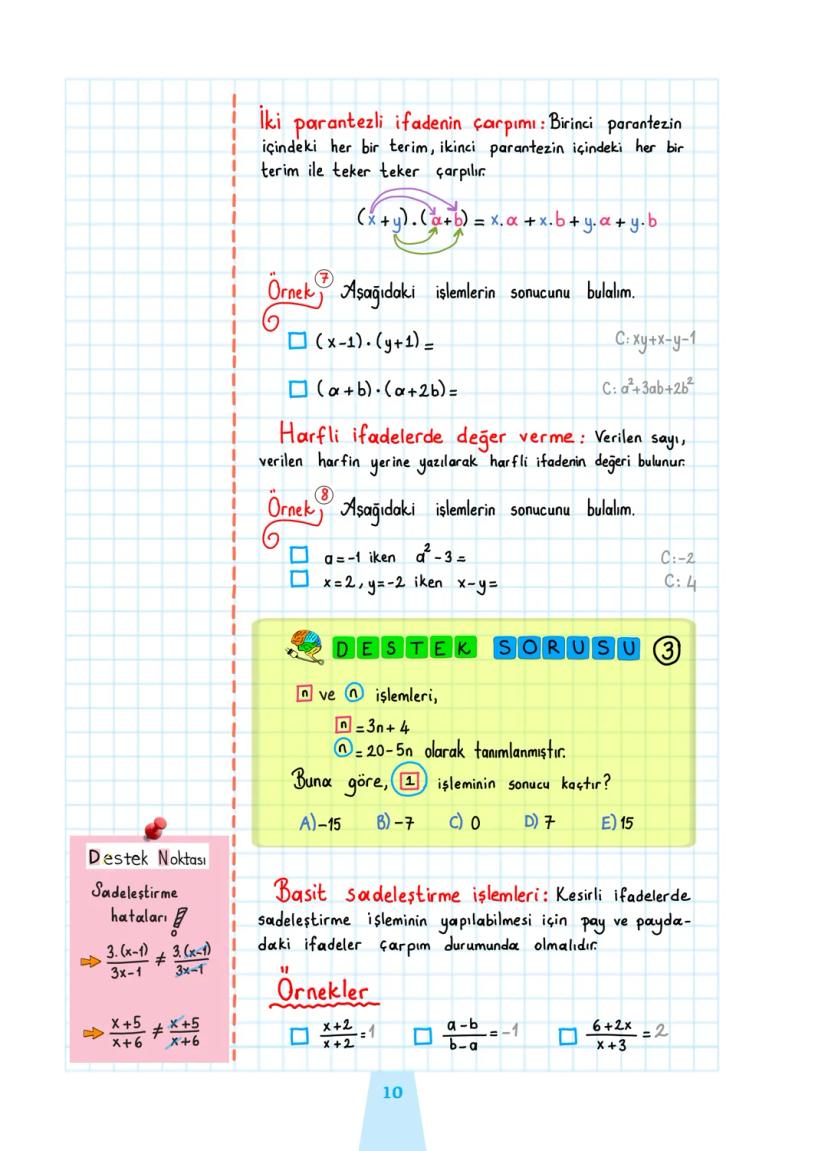 İki parantezli ifadenin çarpımı: Birinci parantezin
içindeki her bir terim, ikinci parantezin içindeki her bir
terim ile teker teker çarpılır.
(x+y).(a+b) = x.a + x.b + y.a + y.b
Örnek 7 Aşağıdaki işlemlerin sonucunu bulalım.
(x-1).(y+1) = C: xy+x-y-1
(a+b).(a+2b) = C: a²+3ab+2b²
Harfli ifadelerde değer verme: Verilen sayı,
verilen harfin yerine yazılarak harfli ifadenin değeri bulunur.
Örnek 8 Aşağıdaki işlemlerin sonucunu bulalım.
a=-1 iken a²-3= C:-2
x=2, y=-2 iken x-y= C: 4
DESTEK SORUSU 3
n ve n işlemleri,
n = 3n+4
n = 20-5n olarak tanımlanmıştır.
Buna göre, 1 işleminin sonucu kaçtır?
A) -15 B) -7 C) 0 D) 7 E) 15
Destek Noktası
Sadeleştirme
hataları!
3.(x-1)/3x-1 ≠ 3.(x-1)/3x-1
x+5/x+6 ≠ x+5/x+6
Basit sadeleştirme işlemleri: Kesirli ifadelerde
sadeleştirme işleminin yapılabilmesi için pay ve payda-
daki ifadeler çarpım durumunda olmalıdır.
Örnekler
x+2/x+2 = 1 a-b/b-a = -1 6+2x/x+3 = 2
10